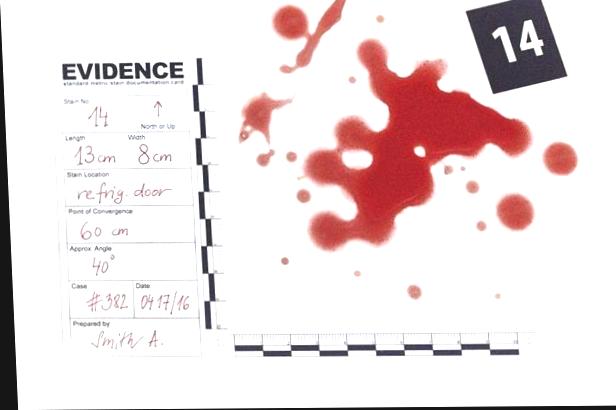 EVIDENCE
standard metric stain documentation card
14
Stain No
14
North or Up
Length Width
13cm 8cm
Stain Location
refrig. door
Point of Convergence
60 cm
Approx. Angle
40°
Case Date
#382 0417/16
Prepared by
Smith A.